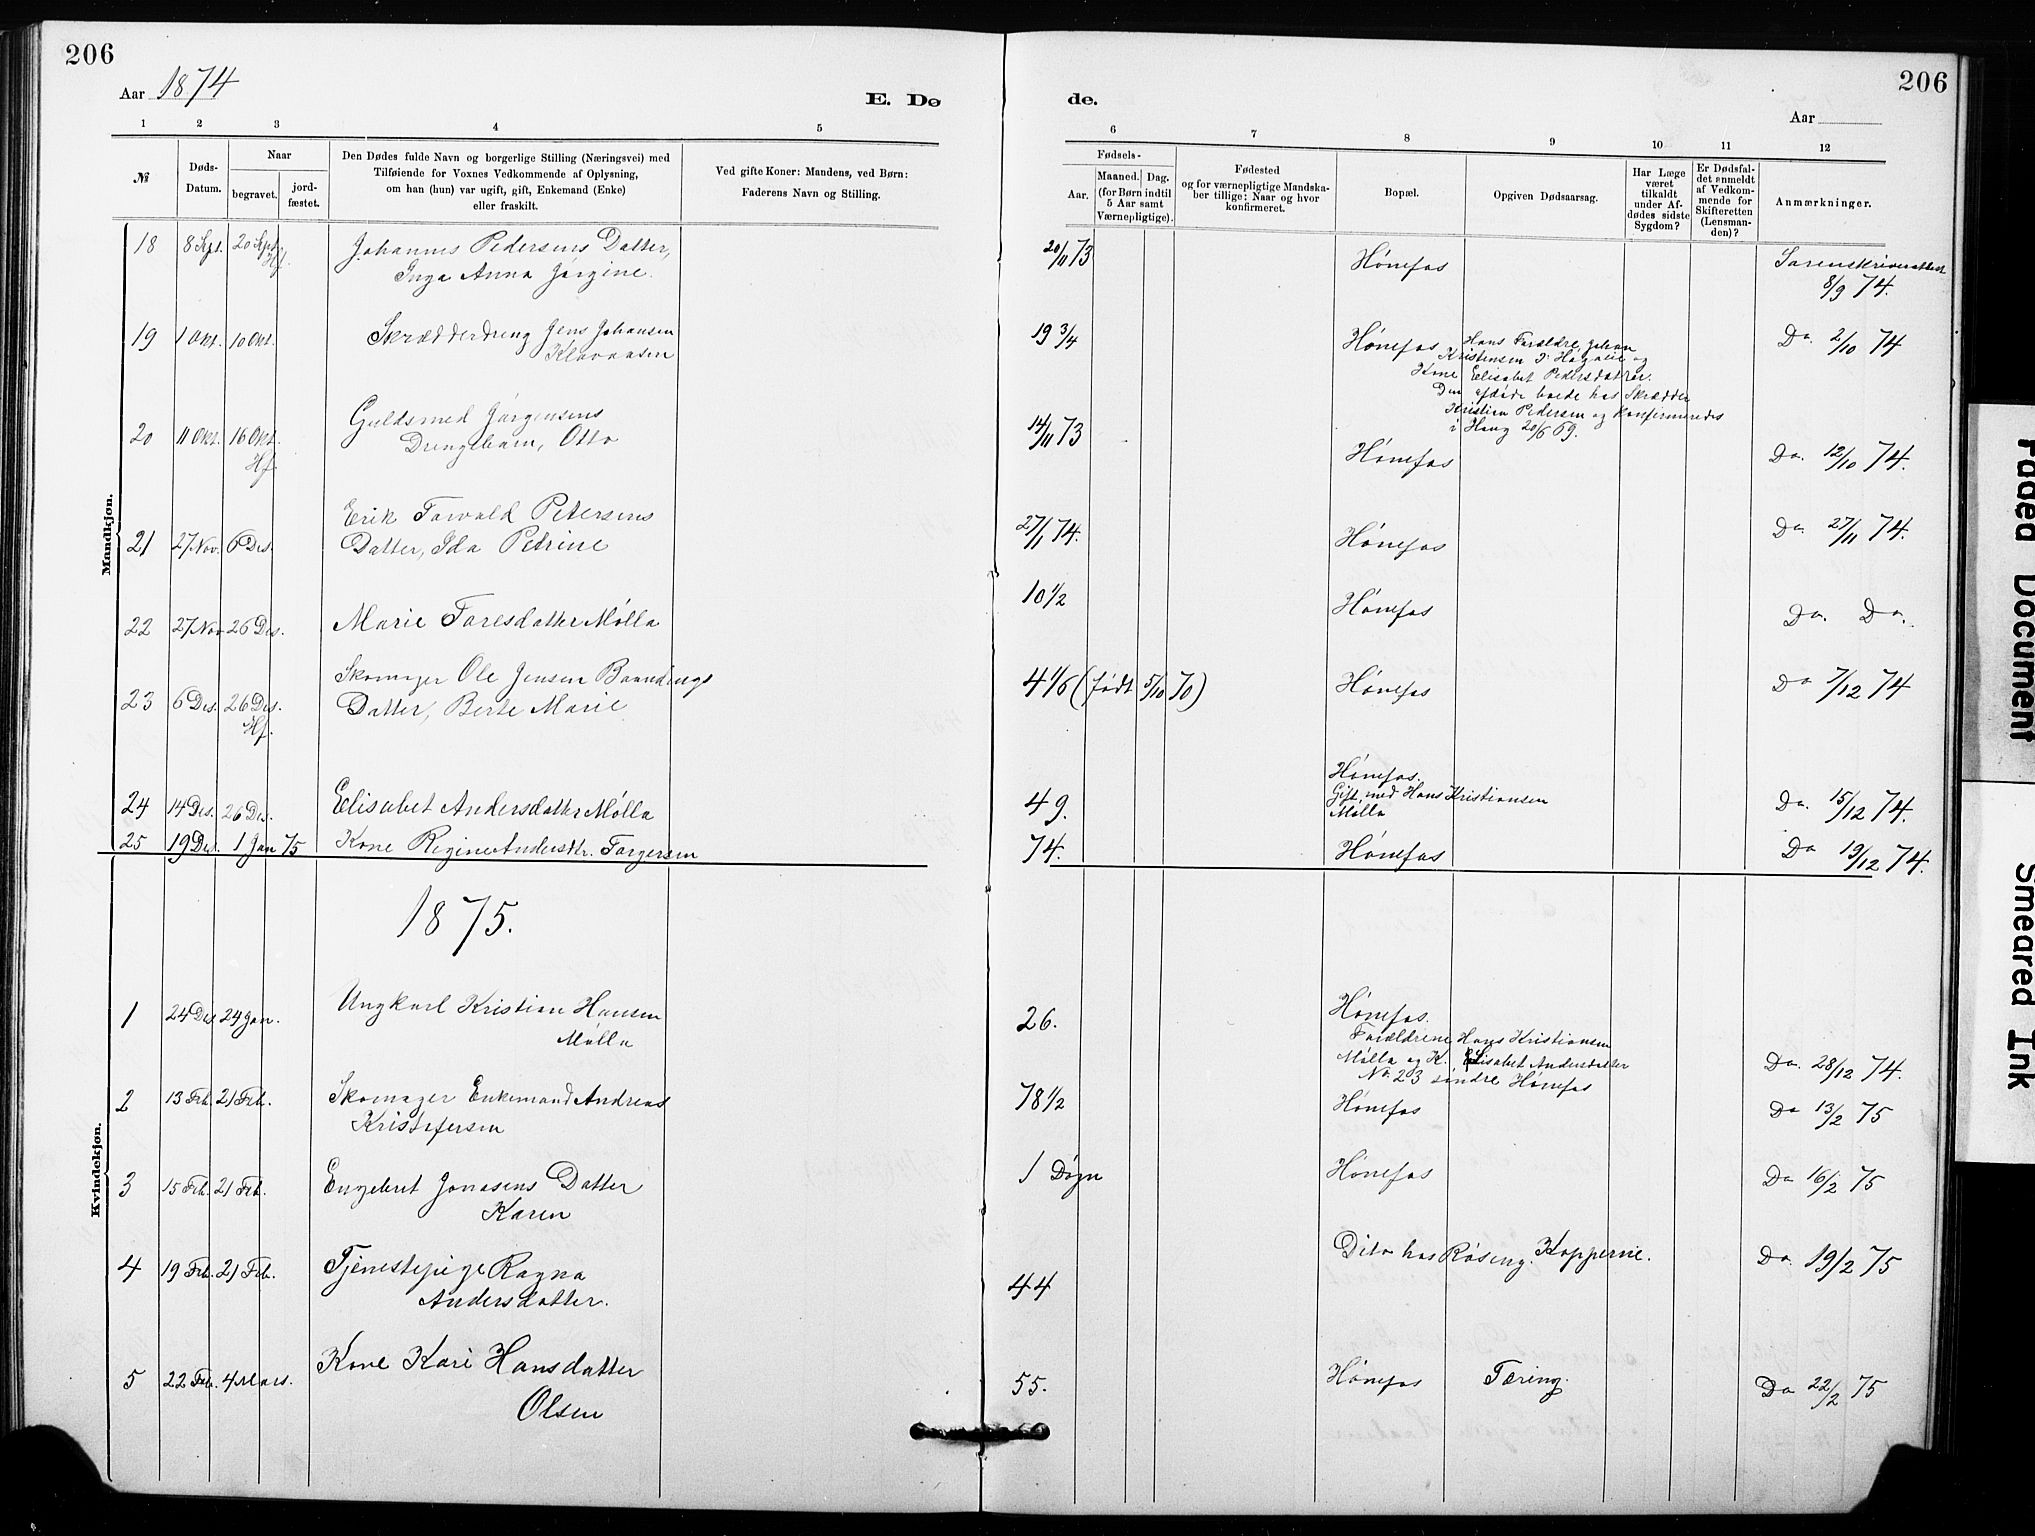 206
206
Aar 1874
E. Dø
de.
Aar
1 2 3 4 5
6 7 8 9 10 11 12
№
Døds-Datum.
Naar
begravet.
jord-fæstet.
Den Dødes fulde Navn og borgerlige Stilling (Næringsvei) med
Tilføiende for Voxnes Vedkommende af Oplysning,
om han (hun) var ugift, gift, Enkemand (Enke)
eller fraskilt.
Ved gifte Koner: Mandens, ved Børn:
Faderens Navn og Stilling.
Fødsels-
Aar.
Maaned. Dag.
(for Børn indtil
5 Aar samt
Værnepligtige).
Fødested
og for værnepligtige Mandska-
ber tillige: Naar og hvor
konfirmeret.
Bopæl.
Opgiven Dødsaarsag.
Har Læge
været
tilkaldt
under Af-
dødes sidste
Sygdom?
Er Dødsfal-
det anmeldt
af Vedkom-
mende for
Skifteretten
(Lensman-
den)?
Anmærkninger.
Mandkjøn.
18 8 Sept. 20 Sept. Hf. Johannes Pedersens Datter,
Inga Anna Jørgine.
20/11 73 Hønefos Sorenskriverattest
8/9 74.
19 1 Okt. 10 Okt. Skrædderdreng Jens Johansen
Klavaasen
19 3/4 Hønefos Hans Forældre, Johan
Kristensen og
Kone Elisabet Pedersdatter.
Den afdøde boede hos Skrædder
Kristian Pedersen og konfirmeredes
i Haug 20/6 69.
Do. 2/10 74
20 11 Okt. 16 Okt. Hf. Guldsmed Jørgensens
Drengebarn, Otto
14/11 73 Hønefos Do. 12/10 74.
21 27 Nov. 6 Des. Erik Torvald Petersens
Datter, Ida Petrine
27/1 74. Hønefos Do. 27/11 74.
22 27 Nov 26 Des. Marie Toresdatter Mølla
10 1/2 Hønefos Do. Do.
23 6 Des. 26 Des. Hf. Skomager Ole Jensen
Datter, Berte Marie
4 1/6 (født 5/10 70) Hønefos Do 7/12 74
24 14 Des. 26 Des. Elisabet Andersdatter Mølla
49. Hønefos.
Gift med Hans Kristiansen
Mølla
Do. 15/12 74.
25 19 Des. 1 Jan 75 Kone Regine Andersdtr. Torgersen
74. Hønefos Do 19/12 74.
1875.
Kvindekjøn.
1 24 Des 24 Jan. Ungkarl Kristian Hansen
Mølla
26. Hønefos.
Forældrene Hans Kristiansen
Mølla og K. Elisabet Andersdatter
No. 23 søndre Hønefos
Do. 28/12 74.
2 13 Feb. 21 Feb. Skomager Enkemand Andreas
Kristofersen
78 1/2 Hønefos Do 13/2 75
3 15 Feb. 21 Feb. Engebret Jonasens Datter
Karen
1 Døgn Hønefos Do 16/2 75
4 19 Feb. 21 Feb. Tjenestepige Ragna
Andersdatter.
44 Dito hos Røseng. Kopperne. Do. 19/2 75
5 22 Feb. 4 Mars. Kone Kari Hansdatter
Olsen
55. Hønefos Tæring. Do 22/2 75
Faded Document
Smeared Ink